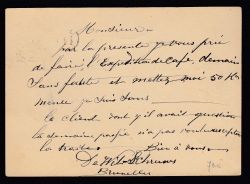 Monsieur
par la presente je vous prie
de faire l'Expedition de Café, demain
sans faute et mettez moi 50 K
même je suis sans
le client dont y'il avait question
la semaine passée n'a pas voulu accepter
la traite. Bien à vous
De Wit
Bruxelles